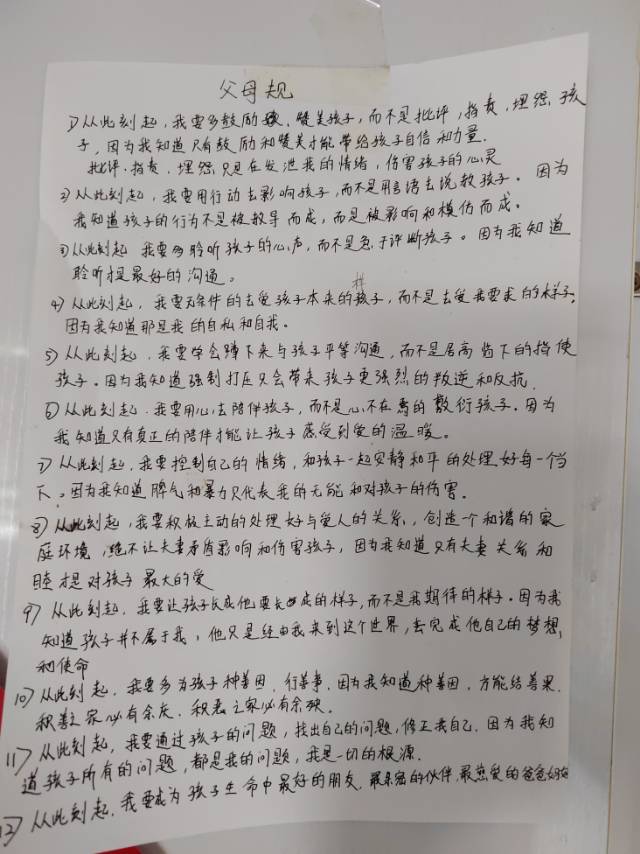 父母规
1) 从此刻起，我要多鼓励、赞美孩子，而不是批评，指责，埋怨孩
子，因为我知道只有鼓励和赞美才能带给孩子自信和力量.
批评.指责，埋怨只是在发泄我的情绪，伤害孩子的心灵
2) 从此刻起，我要用行动去影响孩子，而不是用言语去说教孩子。因为
我知道孩子的行为不是被教导而成，而是被影响和模仿而成。
3) 从此刻起 我要多聆听孩子的心声，而不是急于评断孩子。因为我知道
聆听才是最好的沟通。
4) 从此刻起，我要无条件的去爱孩子本来的样子，而不是去爱我要求的样子.
因为我知道那是我的自私和自我。
5) 从此刻起，我要学会蹲下来与孩子平等沟通，而不是居高当下的指使
孩子。因为我知道强制打压只会带来孩子更强烈的叛逆和反抗.
6) 从此刻起.我要用心去陪伴孩子，而不是心不在焉的敷衍孩子.因为
我知道只有真正的陪伴才能让孩子感受到爱的温暖。
7) 从此刻起，我要控制自己的情绪，和孩子一起安静和平的处理好每一个当
下。因为我知道脾气和暴力只代表我的无能和对孩子的伤害.
8) 从此刻起，我要积极主动的处理好与爱人的关系，创造一个和谐的家
庭环境，绝不让夫妻矛盾影响和伤害孩子，因为我知道只有夫妻关系和
睦才是对孩子最大的爱
9) 从此刻起，我要让孩子长成他要长成的样子，而不是我期待的样子。因为我
知道孩子并不属于我，他只是经由我来到这个世界，去完成他自己的梦想
和使命
10) 从此刻起，我要多为孩子种善因.行善事.因为我知道种善因，方能结善果.
积善之家必有余庆.积恶之家必有余殃.
11) 从此刻起，我要通过孩子的问题，找出自己的问题，修正我自己.因为我知
道孩子所有的问题，都是我的问题，我是一切的根源.
12) 从此刻起，我要成为孩子生命中最好的朋友，最亲密的伙伴，最慈爱的爸爸妈妈